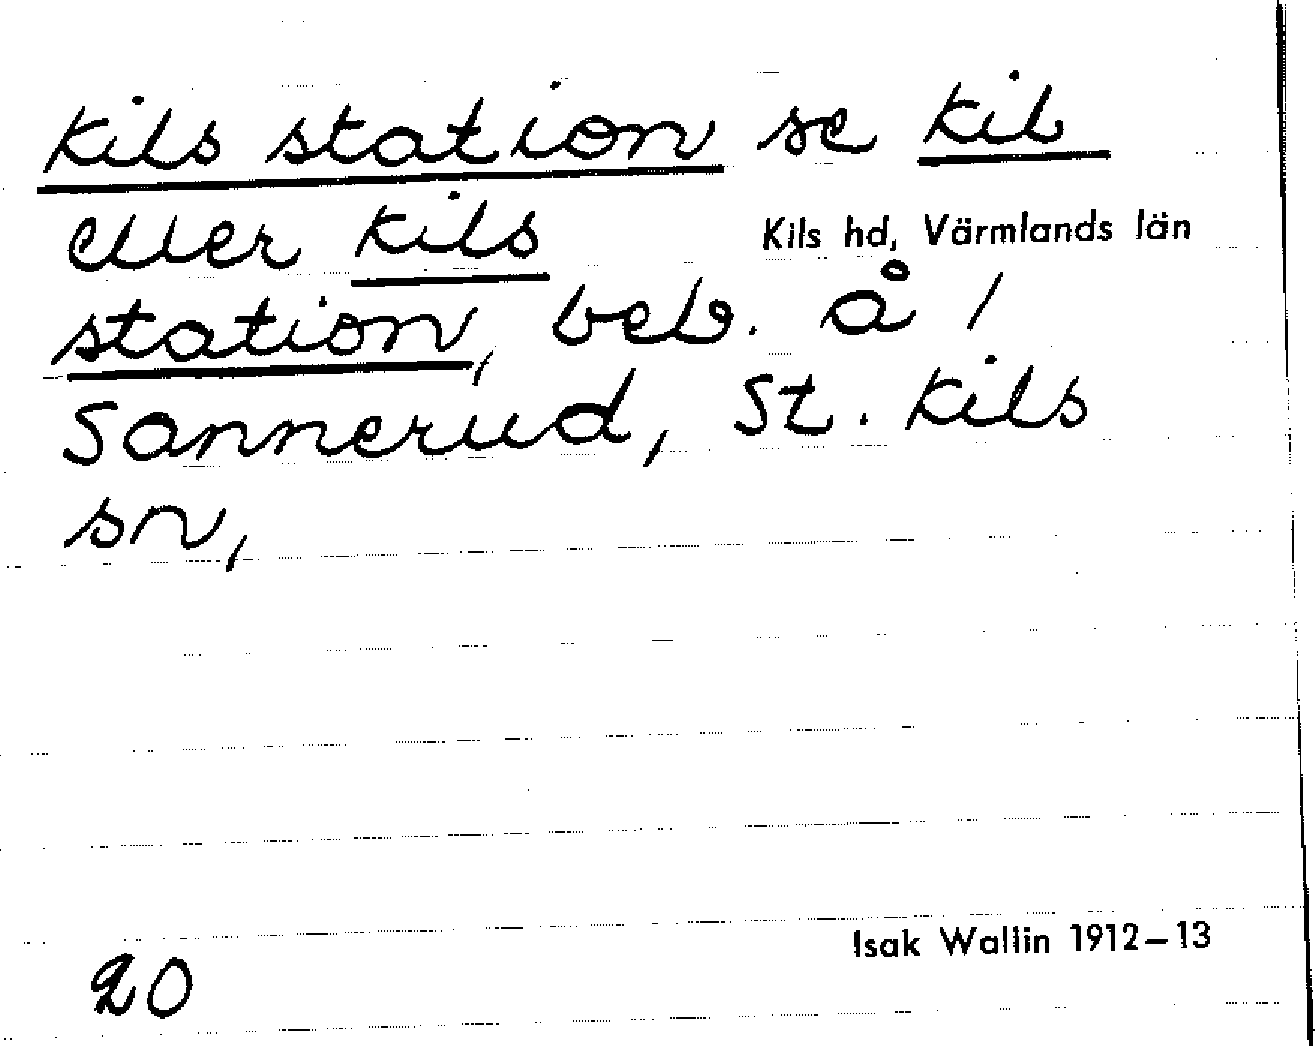 Kils station se Kil
eller Kils
Kils hd, Värmlands län
station, beb. å /
Sannerud, St. Kils
sn,
Isak Wallin 1912–13
20